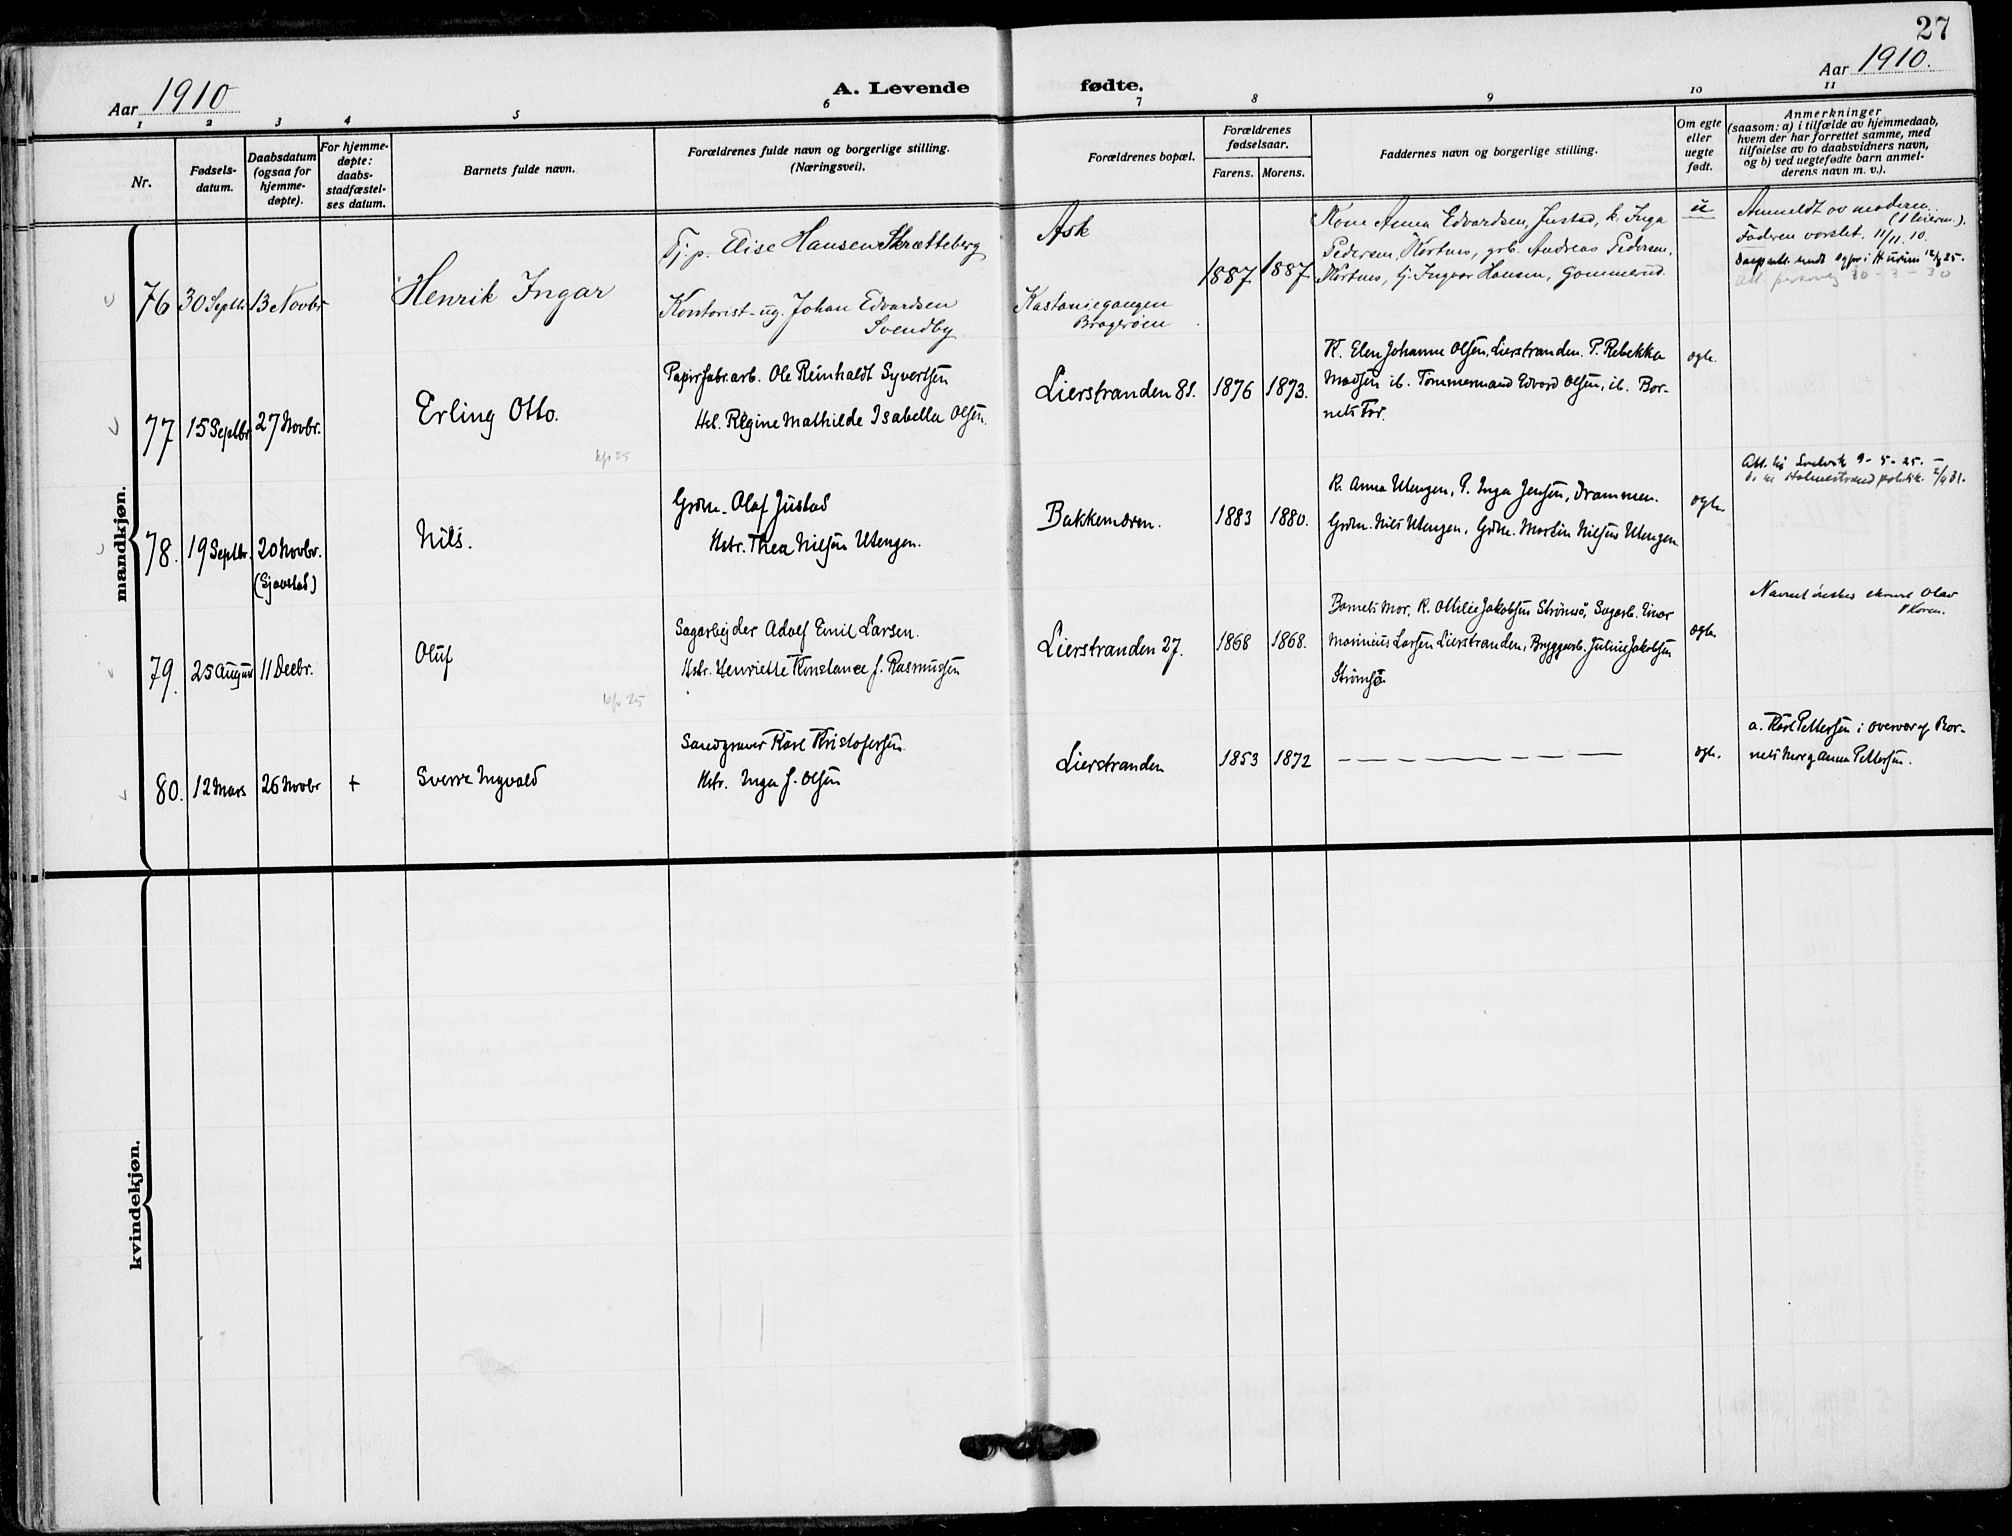 27
Aar 1910
A. Levende fødte.
Aar 1910.
1 2 3 4 5 6 7 8 9 10 11
Nr.
Fødsels-
datum.
Daabsdatum
(ogsaa for
hjemme-
døpte).
For hjemme-
døpte:
daabs-
stadfæstel-
ses datum.
Barnets fulde navn.
Forældrenes fulde navn og borgerlige stilling.
(Næringsvei).
Forældrenes bopæl.
Forældrenes
fødselsaar.
Farens. Morens.
Faddernes navn og borgerlige stilling.
Om egte
eller
uegte
født.
Anmerkninger
(saasom: a) i tilfælde av hjemmedaab,
hvem der har forrettet samme, med
tilføielse av to daabsvidners navn,
og b) ved uegtefødte barn anmel-
derens navn m. v.).
mandkjøn.
76 30 Septbr 13 Novbr
Henrik Ingar
Tj.p. Elise Hansen Skrætteberg
Kontorist-ug. Johan Edvardsen
Svendby
Ask
Kastaniegangen
Bragerøen
1887 1887
Kone Anna Edvardsen, Justad, k. Inga
Pedersen, Kortnes, grb. Andreas Pedersen,
Kortnes, Ingvar Hansen, Gommerud.
u
Anmeldt av moderen
Faderen varslet. 11/11. 10.
30-3-30
77 15 Septbr 27 Novbr.
Erling Otto.
Papirfabr.arb. Ole Reinhaldt Syvertsen
Regine Mathilde Isabella Olsen.
Lierstranden 81. 1876 1873.
K. Elen Johanne Olsen, Lierstranden. P. Rebekka
Madsen ib. Tømmermand Edvard Olsen, ib. Bar-
nets Far.
egte.
78. 19 Septbr. 20 Novbr.
(Sjøvstad)
Nils.
Grdm. Olaf Justad
Hstr. Thea Nilsen Utengen.
Bakkemoren. 1883 1880.
K. Anna Utengen, P. Inga Jensen, Drammen.
Grdm. Nils Utengen, Grdm. Martin Nilsen Utengen
egte
Att. til Svelvik 9-5-25.
Holmestrand
79. 25 August 11 Decbr.
Oluf
Sagarbejder Adolf Emil Larsen.
Hstr. Henriette Konstance f. Rasmussen
Lierstranden 27. 1868 1868.
Barnets Mor, K. Ottilie Jakobsen Strømsø, Sagarb. Einar
Marinius Larsen Lierstranden, Bryggearb. Julius Jakobsen
Strømsø
egte
Navnet ønskes skrevet Olav
80. 12 Mars 26 Novbr +
Sverre Ingvald
Sandgraver Karl Kristofersen
Hstr. Inga f. Olsen
Lierstranden 1853 1872
— — — — — — — —
egte.
a. Karl Pettersen i overvær af Bar-
nets Mor og Anna Pettersen.
kvindekjøn.